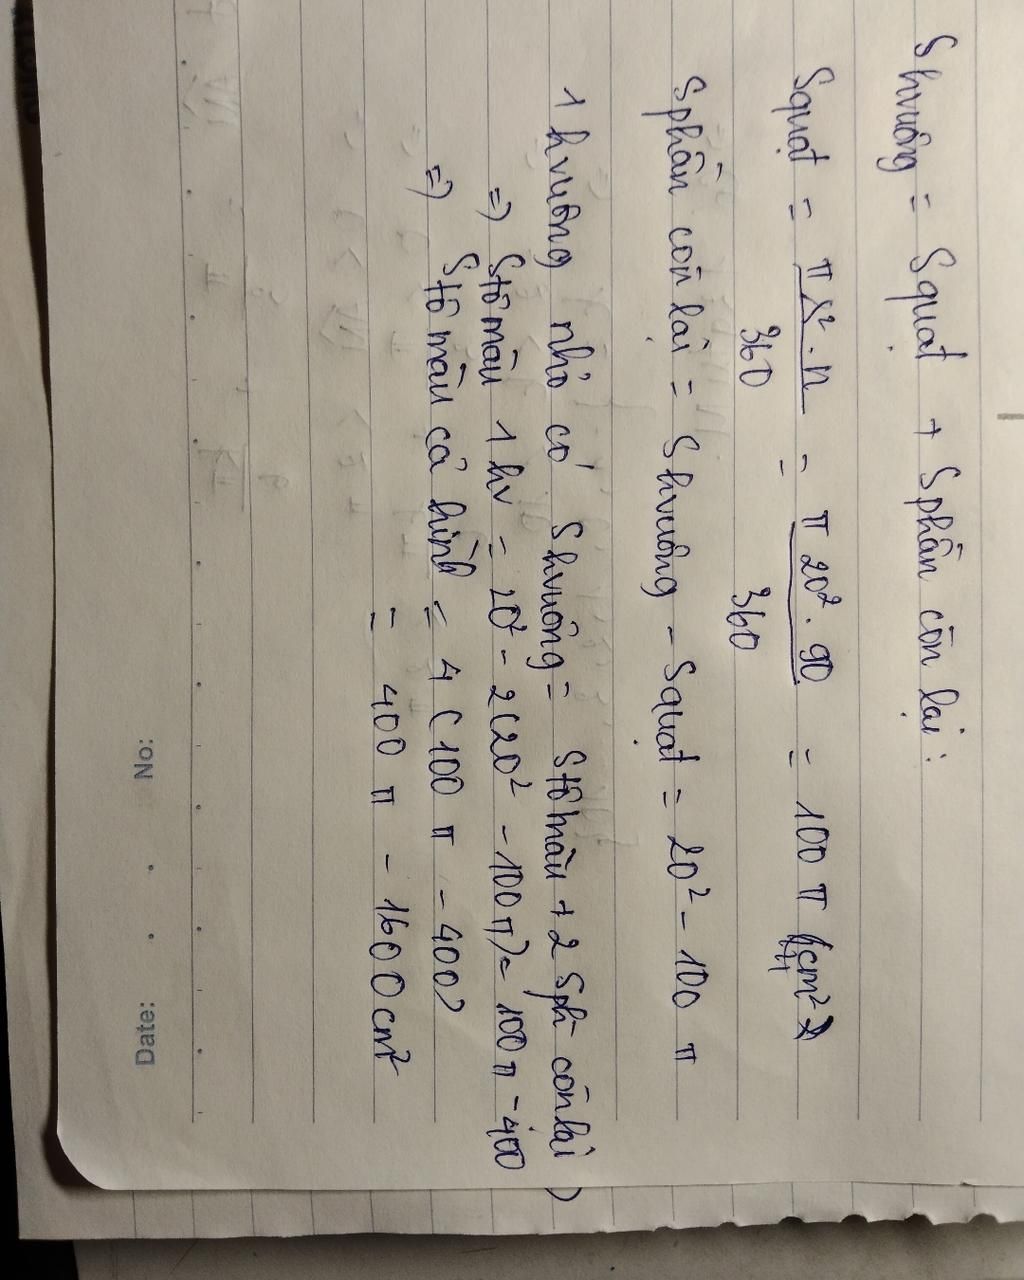 Shvuông = Squạt + Sphần còn lại:
Squạt = πr².n/360 = π20².90/360 = 100π (cm²)
Sphần còn lại = Shvuông - Squạt = 20² - 100π
1 hvuông nhỏ có Shvuông = Stô màu + 2 Sph còn lại
=> Stô màu 1 hv = 20² - 2(20² - 100π) = 100π - 400
=> Stô màu cả hình = 4(100π - 400)
= 400π - 1600cm²
No:
Date: . .